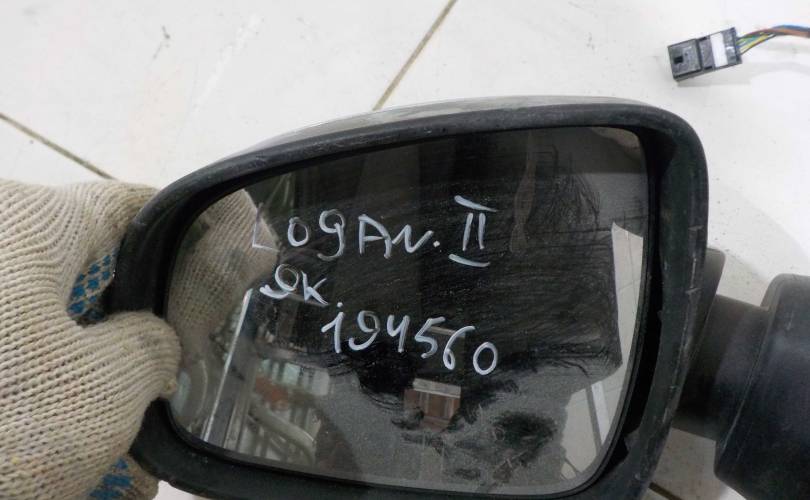 LOGAN. II
эк.
194560